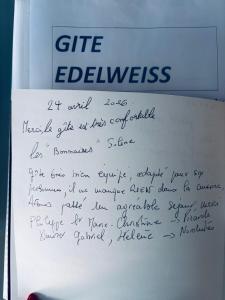 GITE
EDELWEISS
24 avril 2026
Merci, le gîte est très confortable
Les "Bonnaises"
gîte très bien équipé, adapté pour six
personnes, il ne manque RIEN dans la cuisine
Avons passé un agréable séjour merci
Philippe et Marie-Christine → Picardie
Gabriel, Hélène →